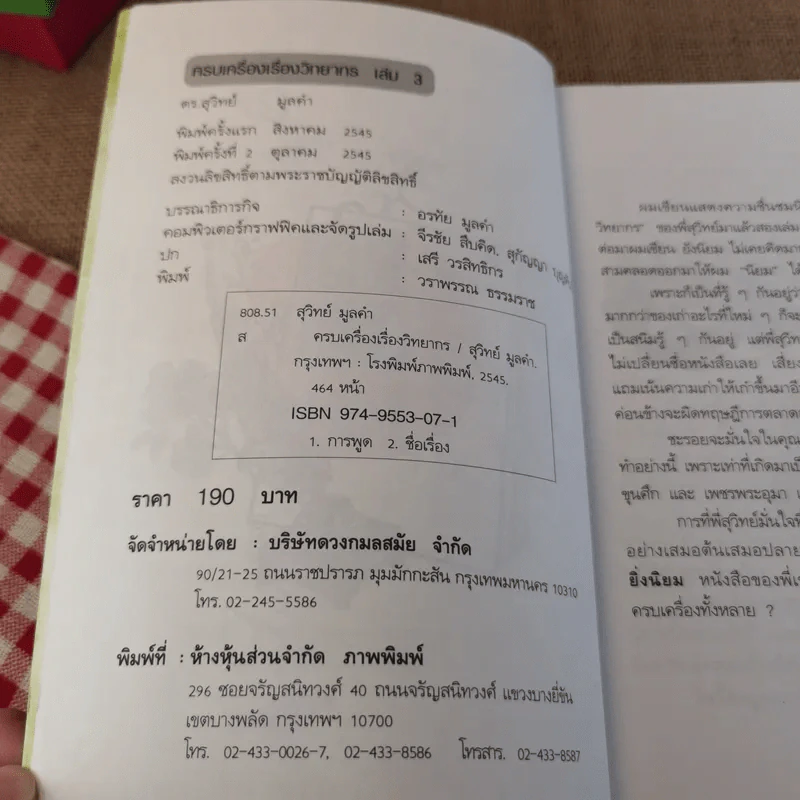 ครบเครื่องเรื่องวิทยากร เล่ม 3
ดร.สุวิทย์ มูลคำ
พิมพ์ครั้งแรก สิงหาคม 2545
พิมพ์ครั้งที่ 2 ตุลาคม 2545
สงวนลิขสิทธิ์ตามพระราชบัญญัติลิขสิทธิ์
บรรณาธิการกิจ : อรทัย มูลคำ
คอมพิวเตอร์กราฟฟิคและจัดรูปเล่ม : จีรชัย สืบคิด, สุกัญญา
ปก : เสรี วรสิทธิกร
พิมพ์ : วราพรรณ ธรรมราช
808.51 สุวิทย์ มูลคำ
ส ครบเครื่องเรื่องวิทยากร / สุวิทย์ มูลคำ.
กรุงเทพฯ : โรงพิมพ์ภาพพิมพ์, 2545.
464 หน้า
ISBN 974-9553-07-1
1. การพูด 2. ชื่อเรื่อง
ราคา 190 บาท
จัดจำหน่ายโดย : บริษัทดวงกมลสมัย จำกัด
90/21-25 ถนนราชปรารภ มุมมักกะสัน กรุงเทพมหานคร 10310
โทร. 02-245-5586
พิมพ์ที่ : ห้างหุ้นส่วนจำกัด ภาพพิมพ์
296 ซอยจรัญสนิทวงศ์ 40 ถนนจรัญสนิทวงศ์ แขวงบางยี่ขัน
เขตบางพลัด กรุงเทพฯ 10700
โทร. 02-433-0026-7, 02-433-8586 โทรสาร. 02-433-8587
ผมเขียนแสดงความชื่นชมนิ
วิทยากร" ของพี่สุวิทย์มาแล้วสองเล่ม
ต่อมาผมเขียน ยิ่งนิยม ไม่เคยคิดมา
สามคลอดออกมาให้ผม "นิยม" ได้
เพราะก็เป็นที่รู้ ๆ กันอยู่ว่า
มากกว่าของเก่าอะไรที่ใหม่ ๆ ก็จะ
เป็นสนิมรู้ ๆ กันอยู่ แต่พี่สุวิท
ไม่เปลี่ยนชื่อหนังสือเลย เสี่ยง
แถมเน้นความเก่าให้เก่าขึ้นมาอี
ค่อนข้างจะผิดทฤษฎีการตลาด
ชะรอยจะมั่นใจในคุณ
ทำอย่างนี้ เพราะเท่าที่เกิดมาเป็
ขุนศึก และ เพชรพระอุมา
การที่พี่สุวิทย์มั่นใจที่
อย่างเสมอต้นเสมอปลาย
ยิ่งนิยม หนังสือของพี่เข
ครบเครื่องทั้งหลาย ?